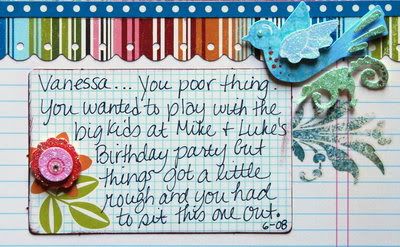 Vanessa... You poor thing.
You wanted to play with the
big kids at Mike + Luke's
Birthday party but
things got a little
rough and you had
to sit this one out.
6-08